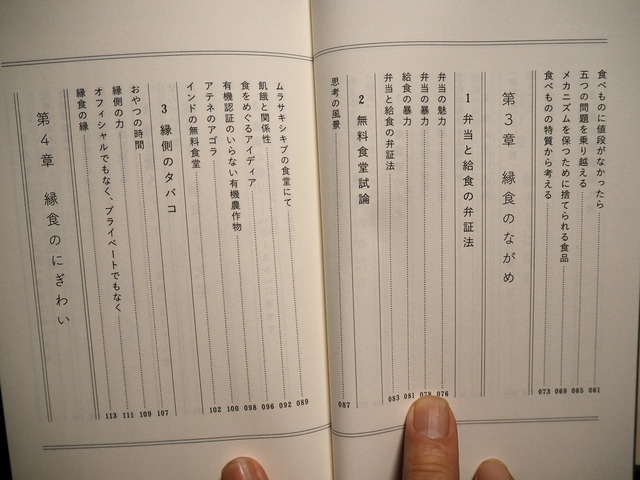 食べものに値段がなかったら 061
五つの問題を乗り越える 065
メカニズムを保つために捨てられる食品 069
食べものの特質から考える 073
第3章 縁食のながめ
1 弁当と給食の弁証法
弁当の魅力 076
弁当の暴力 078
給食の暴力 081
弁当と給食の弁証法 083
2 無料食堂試論
思考の風景 087
ムラサキシキブの食堂にて 089
飢餓と関係性 092
食をめぐるアイディア 096
有機認証のいらない有機農作物 098
アテネのアゴラ 100
インドの無料食堂 102
3 縁側のタバコ
おやつの時間 107
縁側の力 109
オフィシャルでもなく、プライベートでもなく 111
縁食の縁 113
第4章 縁食のにぎわい